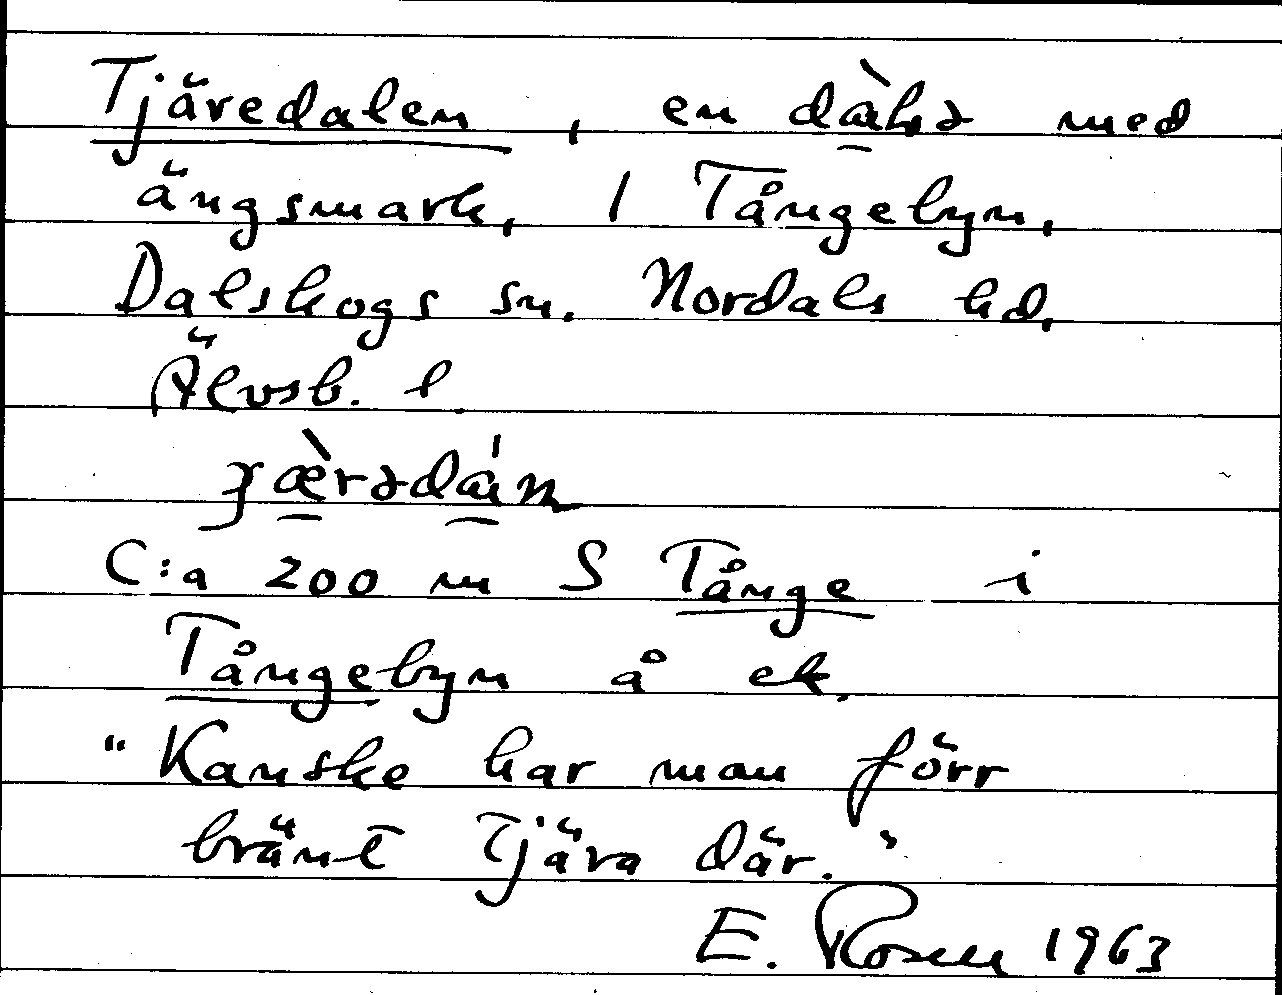 Tjäredalen, en dàlsə med
ängsmark, 1 Tångebyn,
Dalskogs sn. Nordals hd,
Älvsb. l
ȷæ̀rədán
C:a 200 m S Tånge i
Tångebyn å ek.
"Kanske har man förr
bränt Tjära där."
E. Rosell 1963